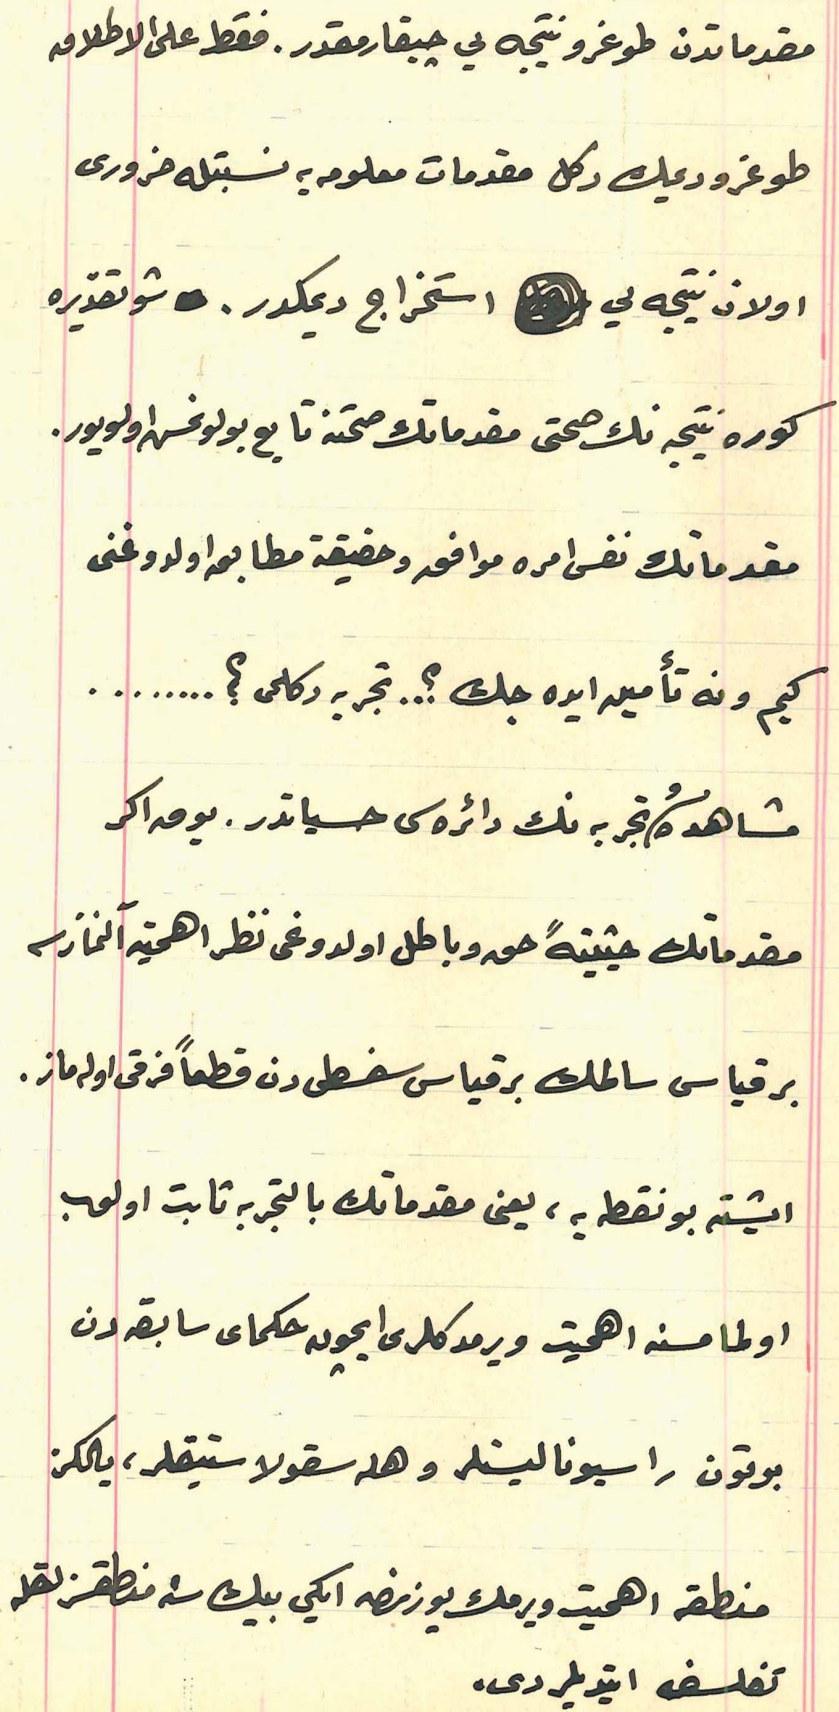 مقدماتدن طوغرو نتیجه یی چیقارمقدر. فقط علی الاطلاق
طوغرو دیمك دكل مقدمات معلومه یه نسبتله ضروری
اولان نتیجه یی استخراج دیمكدر. شو تقدیره
كوره نتیجه نك صحتی مقدماتك صحتنه تابع بولونمش اولویور.
مقدماتك نفس امره موافق و حقیقته مطابق اولدوغنی
كیم و نه تأمین ایده جك ؟.. تجربه دكلمی ؟ ........
مشاهده و تجربه نك دائره سی حسیاتدر. یوق اكر
مقدماتك حیثیتةً حق و باطل اولدوغی نظر اهمیته آلنمازسه
بر قیاس سالمك بر قیاس سفسطی دن قطعاً فرقی اوله ماز.
ایشته بو نقطه یه ، یعنی مقدماتك بالتجربه ثابت اولوب
اولمامسنه اهمیت ویرمدكلری ایچون حكمای سابقه دن
بوتون راسیونالیستلر و هله سقولاستیقلر ، یالكز
منطقه اهمیت ویرمك یوزندن ایكی بیك سنه منطقسزلقله
تفلسف ایتدیلردی.